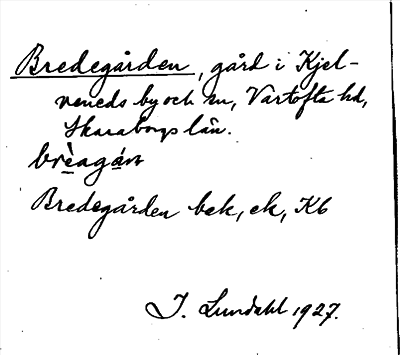 Bredegården, gård i Kjel-
veneds by och sn, Vartofta hd,
Skaraborgs län.
brèagán
Bredegården bek, ek, Kb
I. Lundahl 1927.